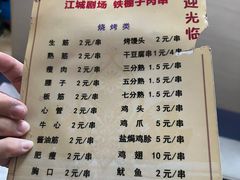 江城剧场 铁棚子肉串
迎光临
烧烤类
生筋 2元/串
熟筋 2元/串
瘦肉 2元/串
腰子 2元/串
板筋 2元/串
心管 2元/串
牛心 2元/串
酱油筋 2元/串
肥瘦 2元/串
胸口 2元/串
烤馒头 2元/串
干豆腐串 1元/串
五分熟 1.5元/串
三分熟 1.5元/串
七分熟 1.5元/串
鸡头 3元/串
鸡爪 5元/串
盐焗鸡胗 5元/串
鸡翅 10元/串
鱿鱼 5元/串